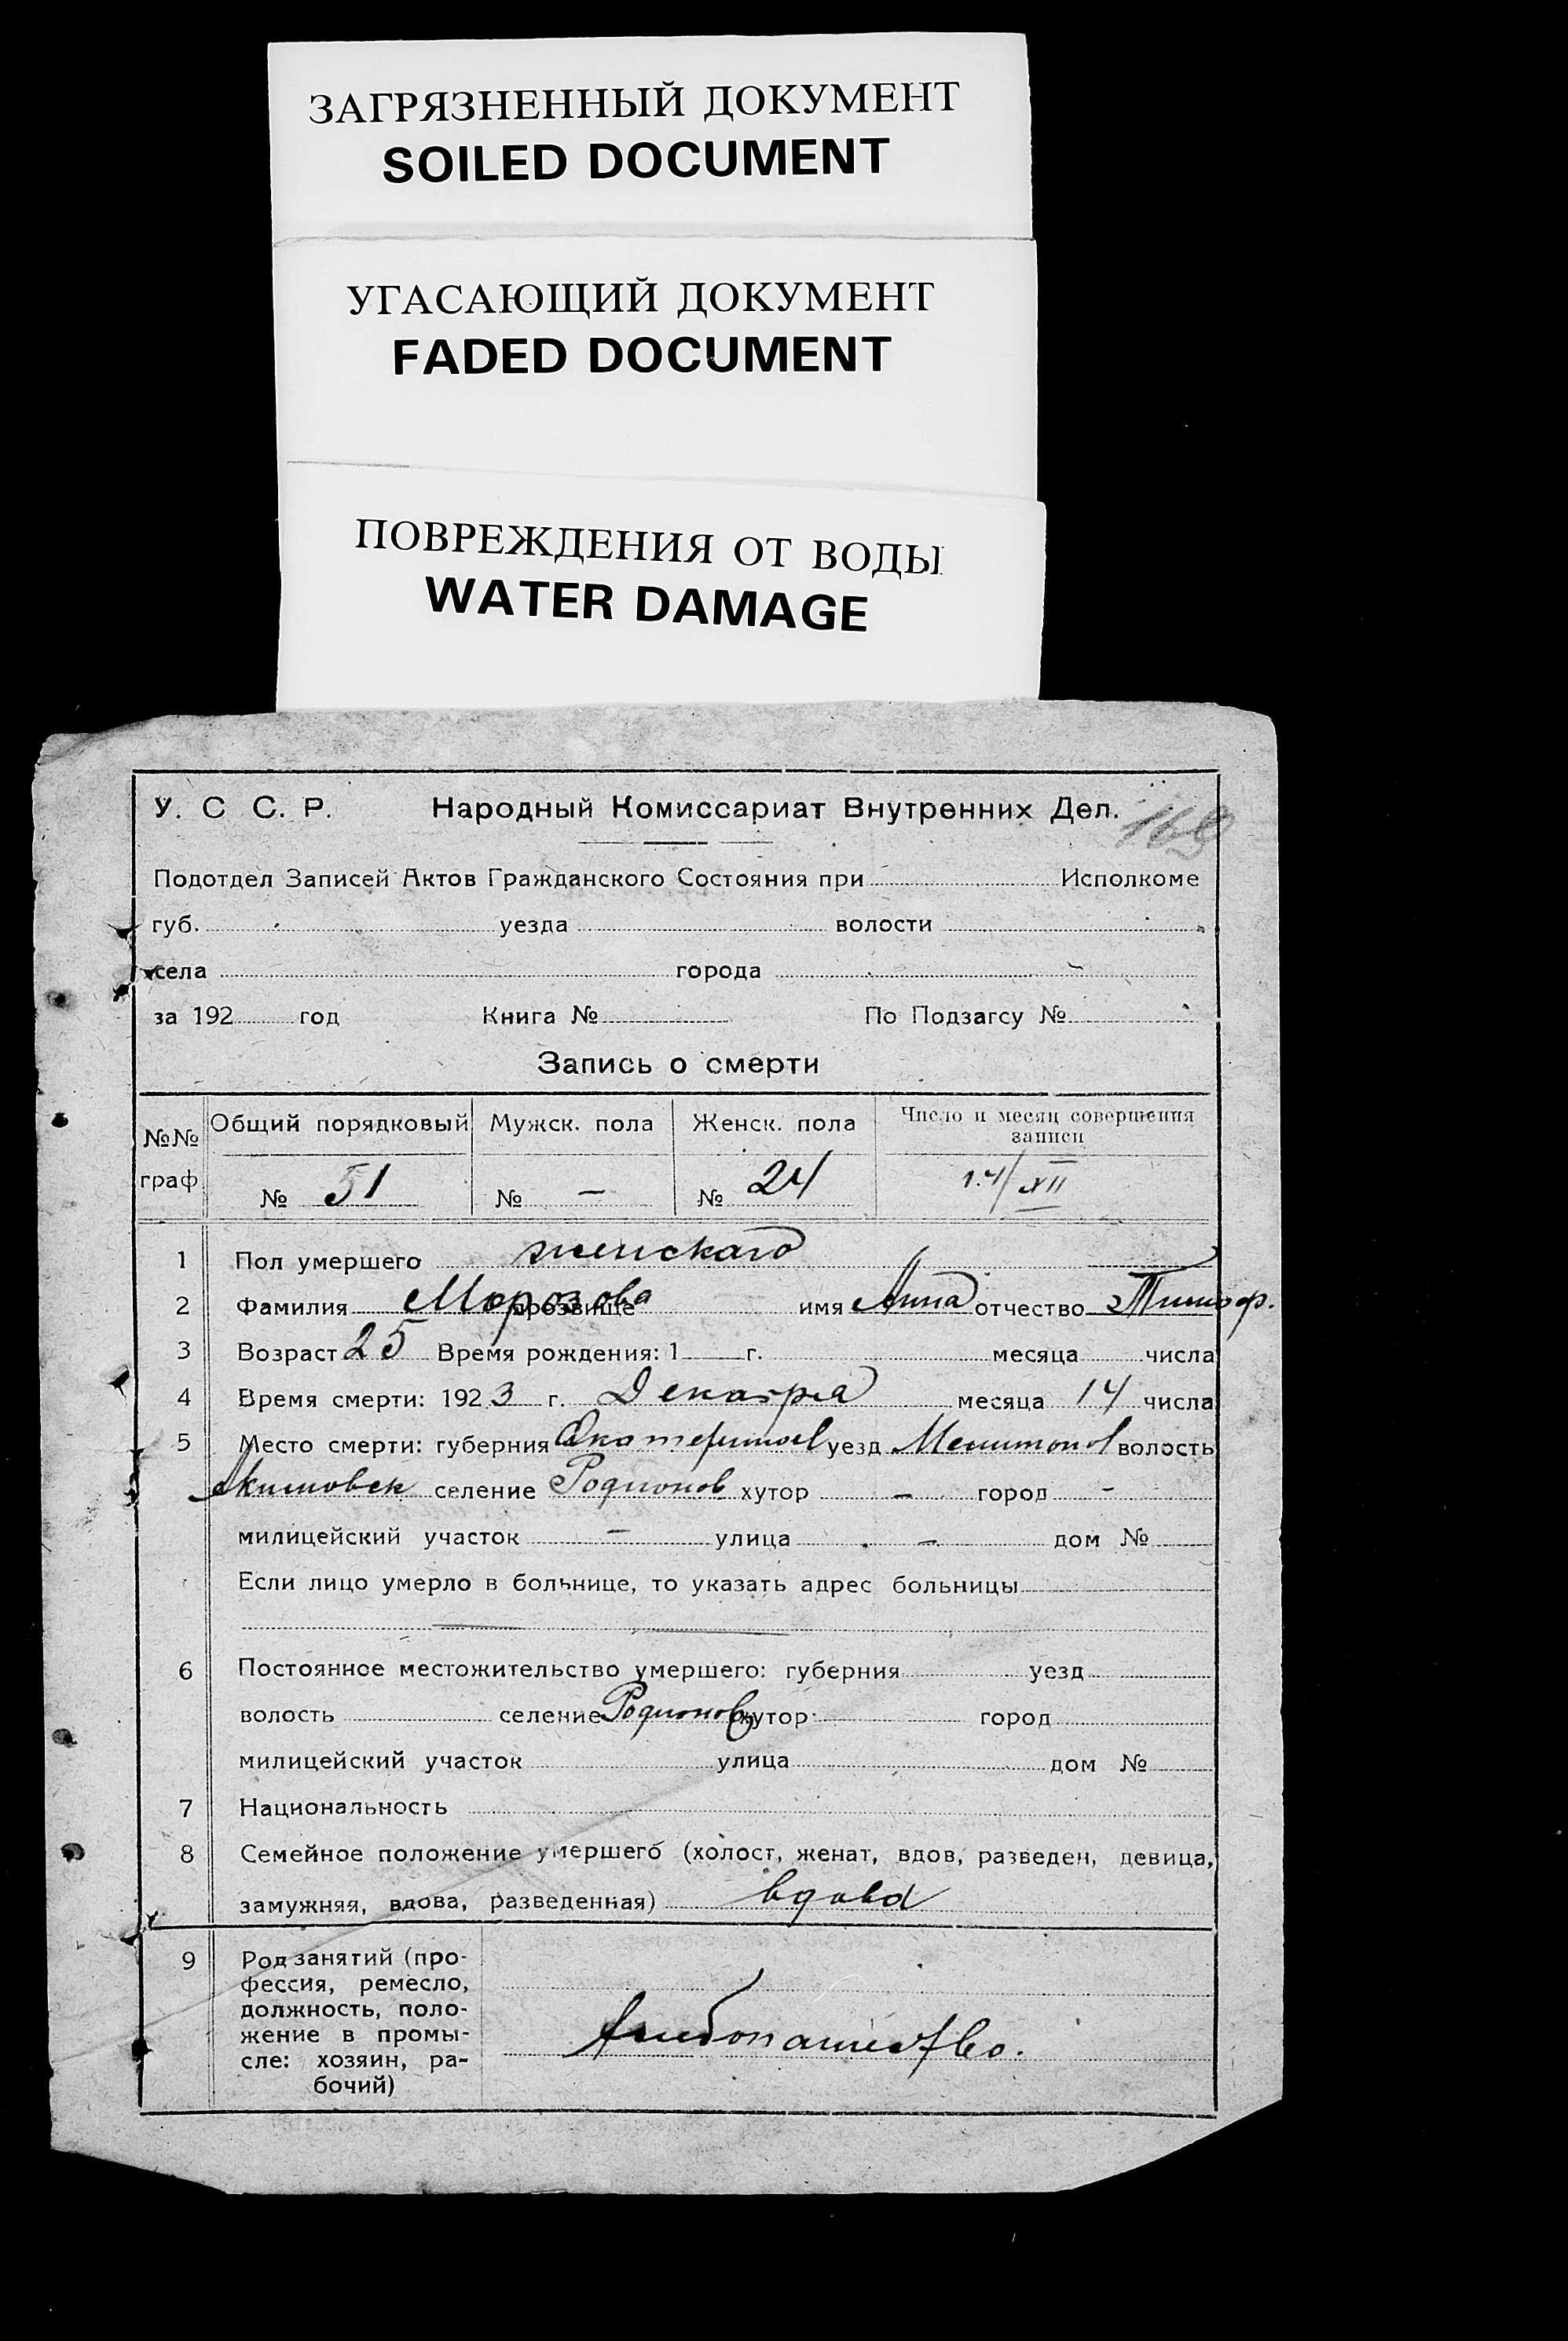 ЗАГРЯЗНЕННЫЙ ДОКУМЕНТ
SOILED DOCUMENT
УГАСАЮЩИЙ ДОКУМЕНТ
FADED DOCUMENT
ПОВРЕЖДЕНИЯ ОТ ВОДЫ
WATER DAMAGE
У. С С. Р. Народный Комиссариат Внутренних Дел.
Подотдел Записей Актов Гражданского Состояния при Исполкоме
губ. уезда волости
села города
за 192 год Книга № По Подзагсу №
Запись о смерти
№№ граф. Общий порядковый Мужск. пола Женск. пола Число и месяц совершения записи
№ 51 № — № 24 14/XII
1 Пол умершего женскаго
2 Фамилия Морозова прозвище имя Анна отчество Тимоф.
3 Возраст 25 Время рождения: 1 г. месяца числа
4 Время смерти: 1923 г. Декабря месяца 14 числа
5 Место смерти: губерния Екатеринос уезд Мелитопол волость
Акимовск селение Родионов хутор — город -
милицейский участок — улица — дом №
Если лицо умерло в больнице, то указать адрес больницы
6 Постоянное местожительство умершего: губерния уезд
волость селение Родионовк хутор город
милицейский участок улица дом №
7 Национальность
8 Семейное положение умершего (холост, женат, вдов, разведен, девица,
замужняя, вдова, разведенная) вдова
9 Род занятий (про-
фессия, ремесло,
должность, поло-
жение в промы-
сле: хозяин, ра-
бочий)
хлебопашество.